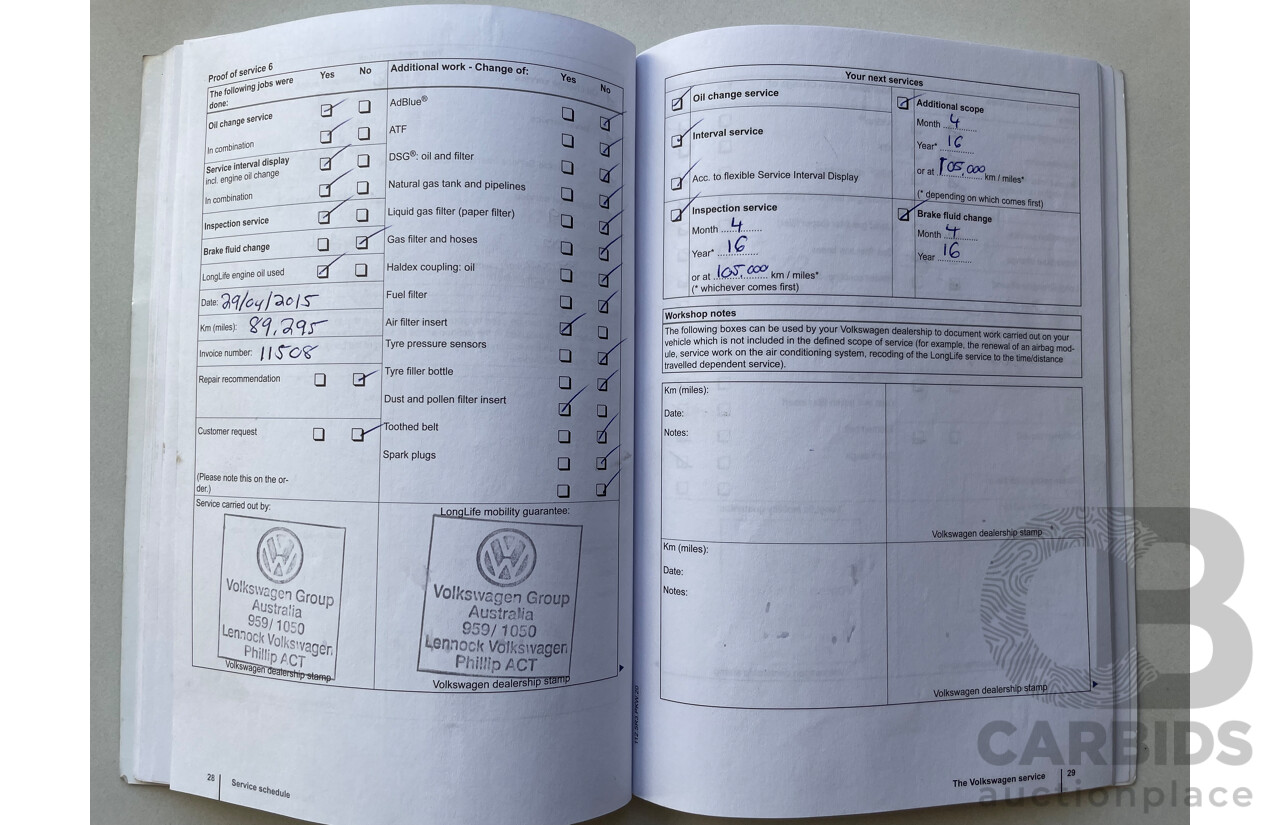 Proof of service 6
The following jobs were
done:
Yes
No
Oil change service
In combination
Service interval display
incl. engine oil change
In combination
Inspection service
Brake fluid change
LongLife engine oil used
Date: 29/04/2015
Km (miles): 89,295
Invoice number: 11508
Repair recommendation
Customer request
(Please note this on the or-
der.)
Additional work - Change of:
Yes
No
AdBlue®
ATF
DSG®: oil and filter
Natural gas tank and pipelines
Liquid gas filter (paper filter)
Gas filter and hoses
Haldex coupling: oil
Fuel filter
Air filter insert
Tyre pressure sensors
Tyre filler bottle
Dust and pollen filter insert
Toothed belt
Spark plugs
Service carried out by:
Volkswagen Group
Australia
959/ 1050
Lennock Volkswagen
Phillip ACT
Volkswagen dealership stamp
LongLife mobility guarantee:
Volkswagen Group
Australia
959/ 1050
Lennock Volkswagen
Phillip ACT
Volkswagen dealership stamp
28
Service schedule
Your next services
Oil change service
Interval service
Acc. to flexible Service Interval Display
Additional scope
Month 4
Year* 16
or at 105,000 km / miles*
(* depending on which comes first)
Inspection service
Month 4
Year* 16
or at 105,000 km / miles*
(* whichever comes first)
Brake fluid change
Month 4
Year 16
Workshop notes
The following boxes can be used by your Volkswagen dealership to document work carried out on your
vehicle which is not included in the defined scope of service (for example, the renewal of an airbag mod-
ule, service work on the air conditioning system, recoding of the LongLife service to the time/distance
travelled dependent service).
Km (miles):
Date:
Notes:
Volkswagen dealership stamp
Km (miles):
Date:
Notes:
Volkswagen dealership stamp
The Volkswagen service
29
CB
CARBIDS
auctionplace